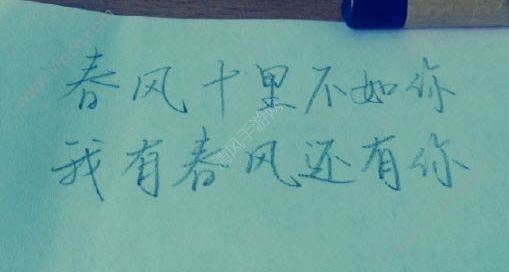 春风十里不如你
我有春风还有你